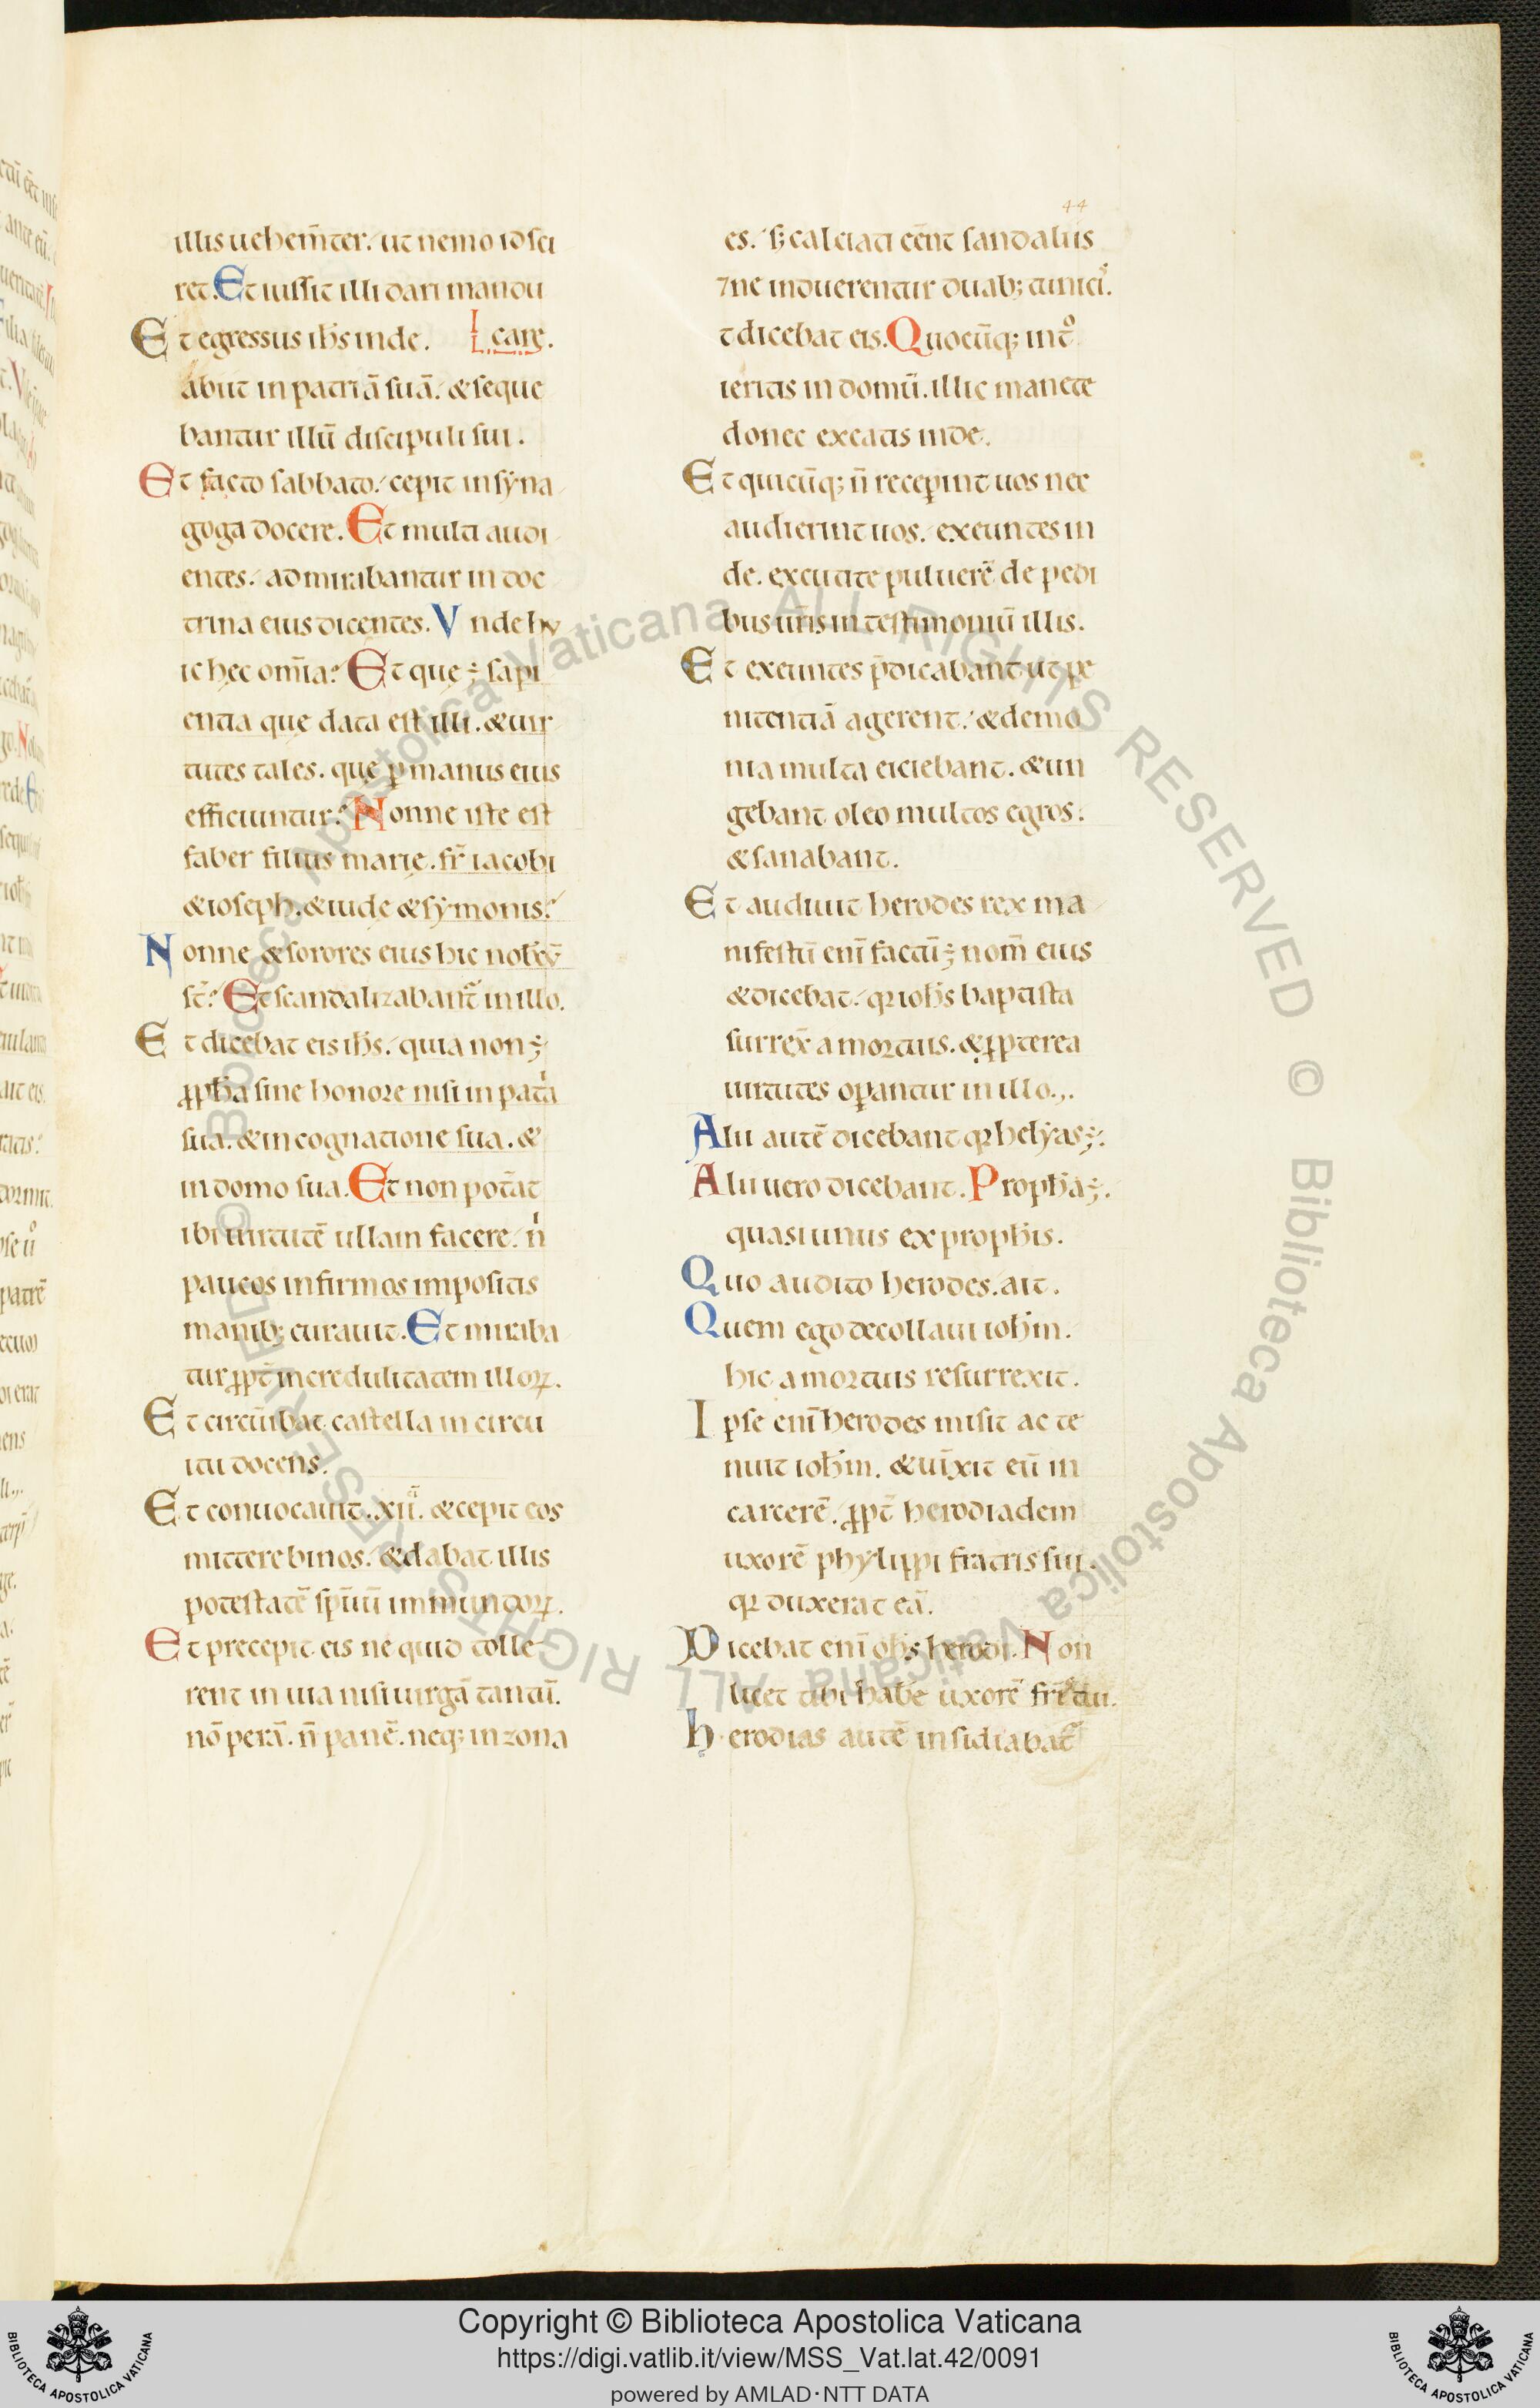 44
illis uehem̄ter. ut nemo id sci
ret. Et iussit illi dari mandu
Et egressus ih̄s inde. care.
abiit in patriā suā. & seque
bantur illū discipuli sui.
Et facto sabbato. cepit in syna
goga docere. Et multi audi
entes. admirabantur in doc
trina eius dicentes. Vnde hu
ic hec om̄ia? Et que ÷ sapi
entia que data est illi. & uir
tutes tales. quę ꝑ manus eius
efficiuntur? Nonne iste est
faber filius marie. fr̄ iacobi
& ioseph. & iude & symonis?
Nonne & sorores eius hic nob̄cū
st̄? Et scandalizabant᷑ in illo.
Et dicebat eis ih̄s. quia non ÷
ꝓph̄a sine honore nisi in patͥa
sua. & in cognatione sua. &
in domo sua. Et non pot̄at
ibi uirtutē ullam facere. nͥ
paucos infirmos impositis
manib; curauit. Et miraba
tur ꝓpt̄ incredulitatem illoꝝ.
Et circūibat castella in circu
itu docens.
Et conuocauit .xii. & cepit eos
mittere binos. & dabat illis
potestatē sp̄iuū immundoꝝ.
Et precepit eis ne quid tolle
rent in uia nisi uirgā tantū.
nō perā. n̄ panē. neq; in zona
es. s; calciati eēnt sandaliis
⁊ ne induerentur duab; tunicͥ.
t dicebat eis. Quocūq; int᷑o
ieritis in domū. illic manete
donec exeatis inde.
Et quicūq; n̄ receꝑint uos nec
audierint uos. exeuntes in
de. excutite puluerē de pedi
bus ur̄is in testimoniū illis.
Et exeuntes p̄dicabant ut pe
nitentiā agerent. & demo
nia multa eiciebant. & un
gebant oleo multos egros.
& sanabant.
Et audiuit herodes rex ma
nifestū eni᷑ factū ÷ nom̄ eius
& dicebat. qꝛ ioh̄s baptista
surrex̄ a mortuis. & ꝓpterea
uirtutes oꝑantur in illo.
Alii autē dicebant qꝛ helyas ÷.
Alii uero dicebant. Proph̄a ÷.
quasi unus ex proph̄is.
Quo audito herodes. ait.
Quem ego decollaui ioh̄m.
hic a mortuis resurrexit.
Ipse eni᷑ herodes misit ac te
nuit ioh̄m. & uīxit eū in
carcerē. ꝓpt̄ herodiadem
uxorē phylippi fratris sui.
qꝛ duxerat eā.
Dicebat eni᷑ ioh̄s herodi. Non
licet tibi hab̄e uxorē fr̄is tui.
Herodias autē insidiabat᷑
© Biblioteca Apostolica Vaticana ALL RIGHTS RESERVED © Biblioteca Apostolica Vaticana ALL RIGHTS RESERVED
BIBLIOTECA APOSTOLICA VATICANA
Copyright © Biblioteca Apostolica Vaticana
https://digi.vatlib.it/view/MSS_Vat.lat.42/0091
powered by AMLAD·NTT DATA
BIBLIOTECA APOSTOLICA VATICANA